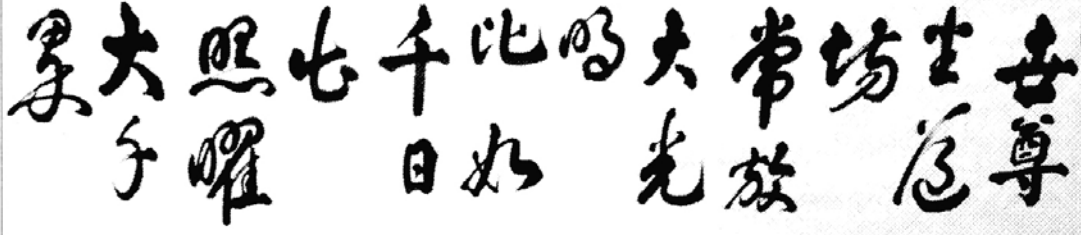 世尊
坐道
場
常放
大光
明
比如
千日
出
照曜
大千
界